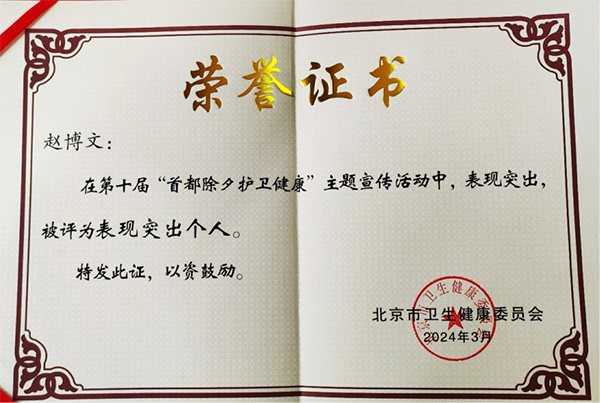 荣誉证书
赵博文：
在第十届“首都除夕护卫健康”主题宣传活动中，表现突出，
被评为表现突出个人。
特发此证，以资鼓励。
北京市卫生健康委员会
2024年3月
北京市卫生健康委员会